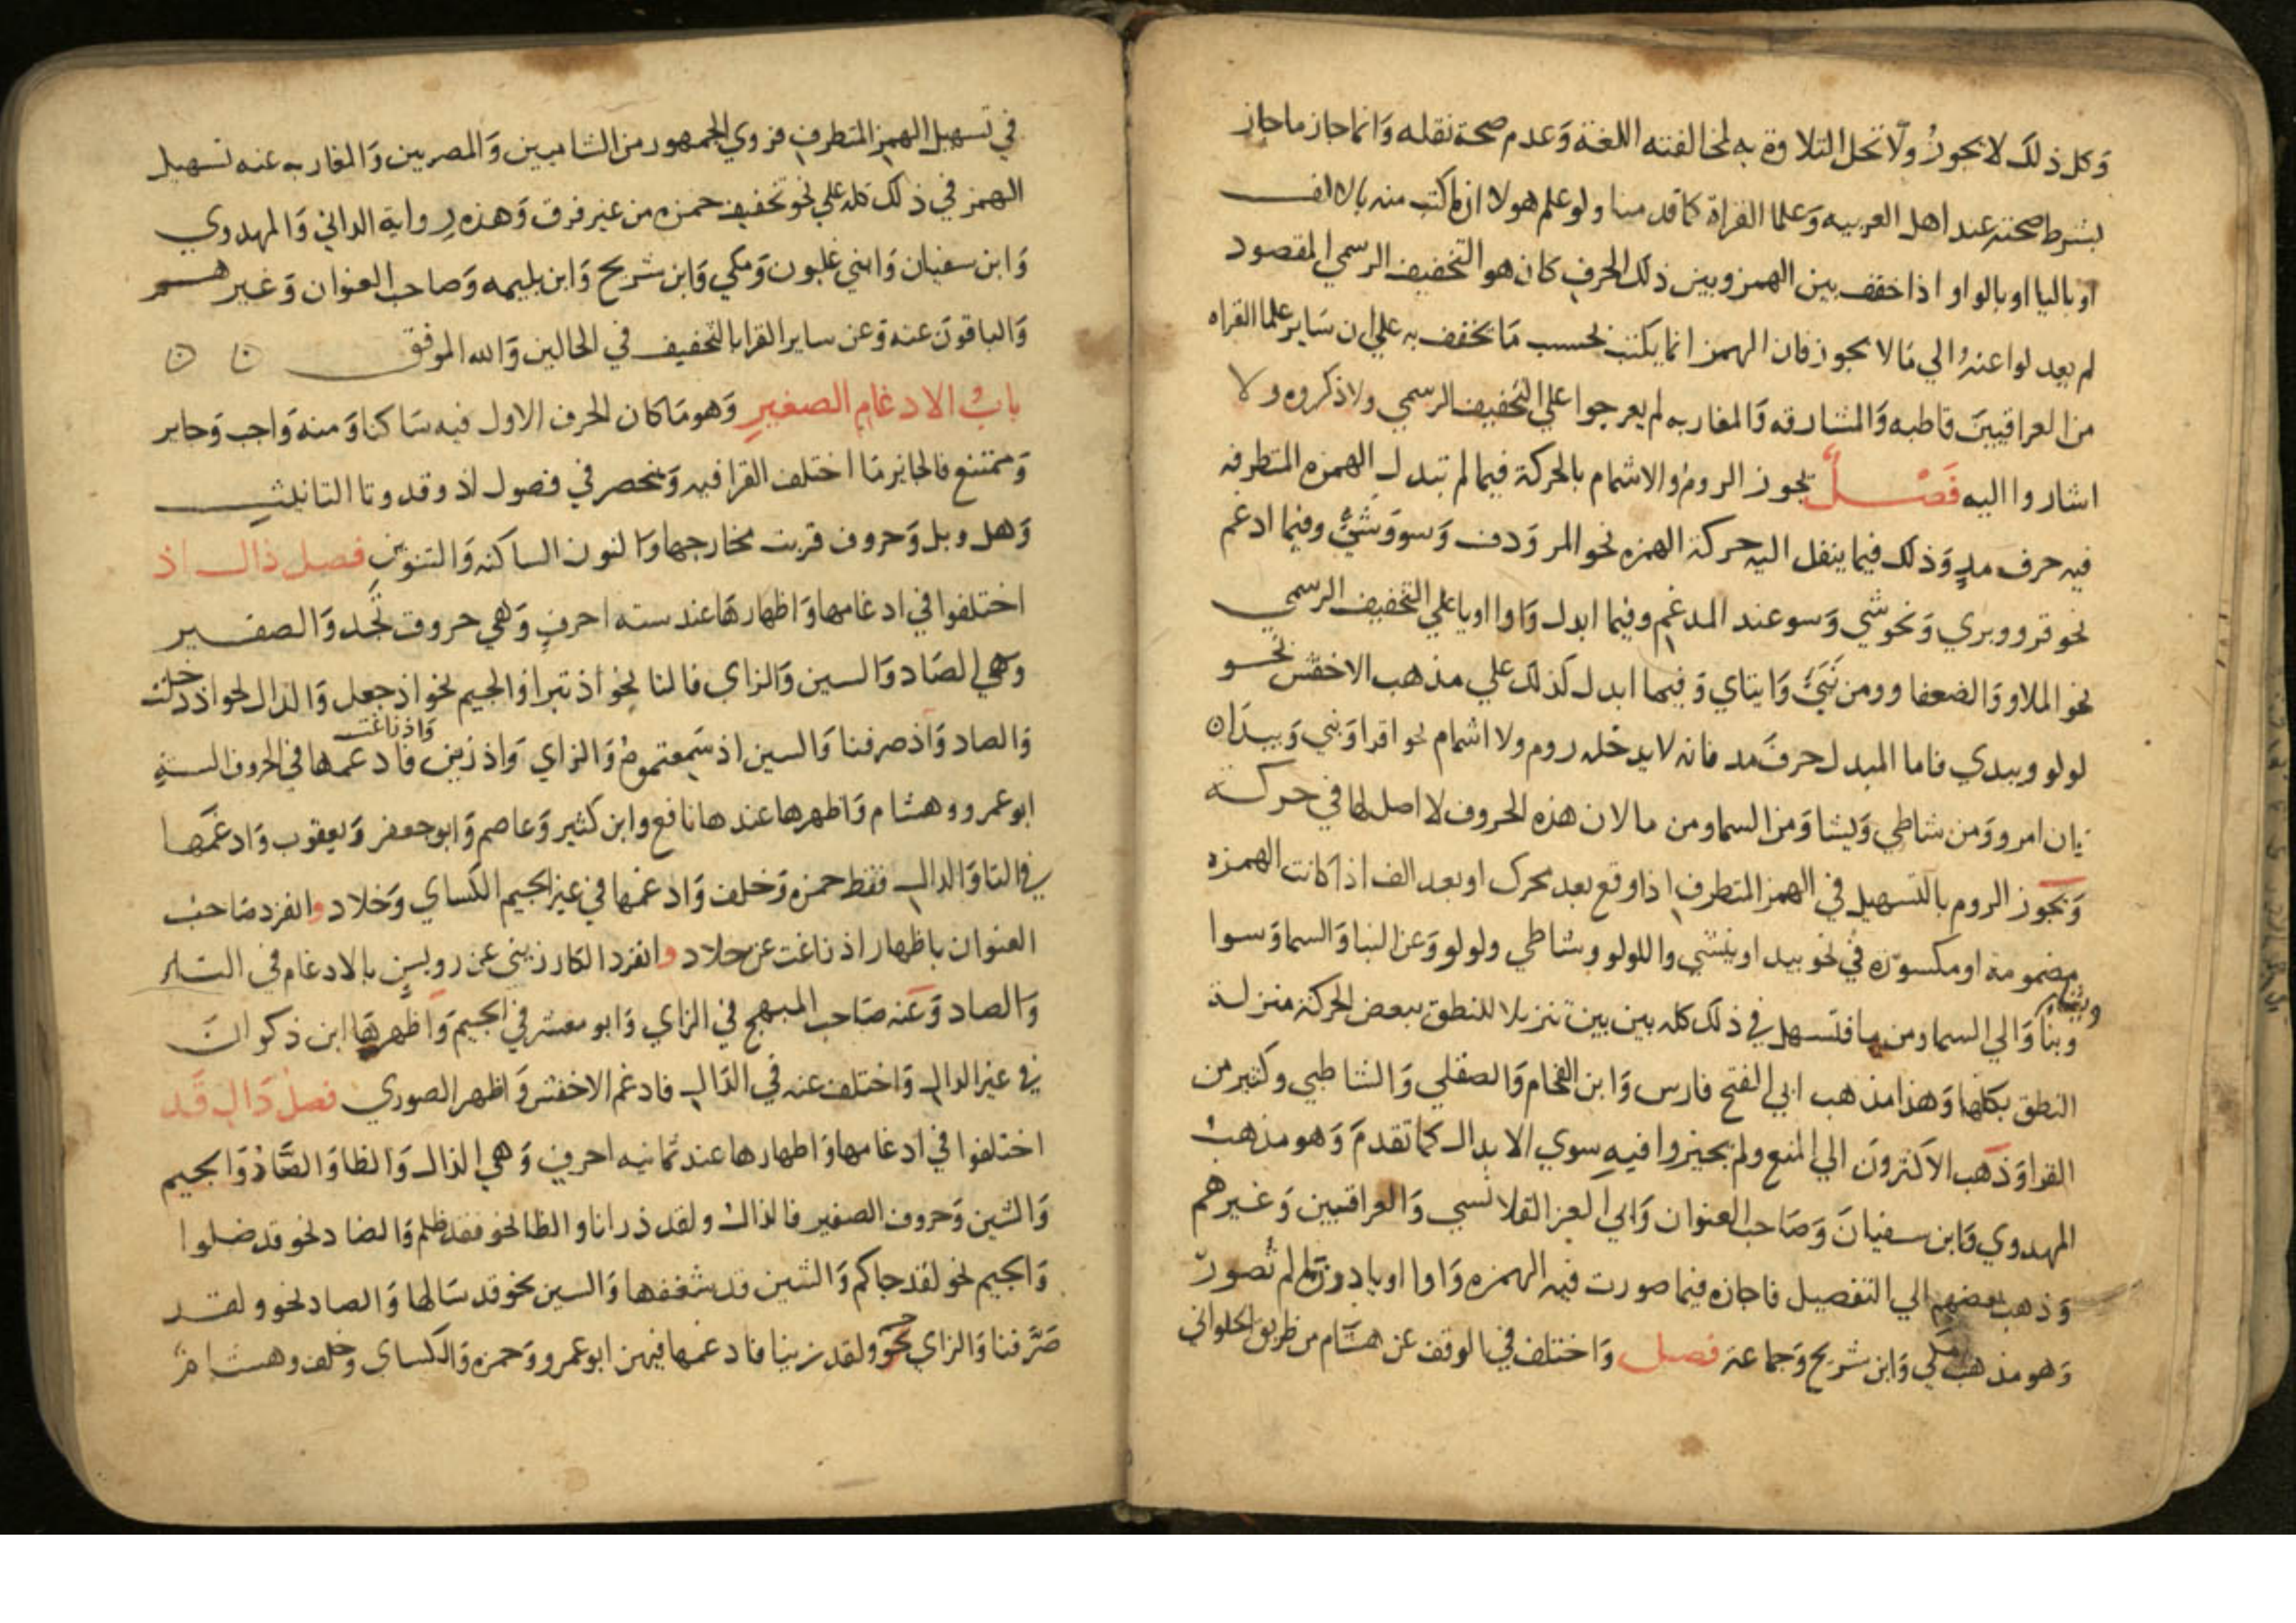 وكل ذلك لا يجوز ولا تحل التلاوة به لمخالفته اللغة وعدم صحة نقله وانما جاز ما جاز
بشرط صحته عند اهل العربيه وعلما القراة كما قدمنا ولو علم هولا ان ما كتب منه بالالف
او باليا او بالواو اذا خفف بين الهمز وبين ذلك الحرف كان هو التخفيف الرسمي المقصود
لم يعدلوا عنه الي ما لا يجوز فان الهمز انما يكتب بحسب ما يخفف به علي ان ساير علما القراه
من العراقيين قاطبه والمشارقه والمغاربه لم يعرجوا علي التخفيف الرسمي ولا ذكروه ولا
اشاروا اليه فصل يجوز الروم والاشمام بالحركة فيما لم تبدل الهمزه المتطرفه
فيه حرف مد وذلك فيما ينقل اليه حركة الهمزه نحو المر ودف وسوو شيء وفيما ادغم
نحو قرو وبري ونحو شي وسو عند المدغم وفيما ابدل واوا او يا علي التخفيف الرسمي
نحو الملاو والضعفاو ومن نبيء وايتاي وفيما ابدل كذلك علي مذهب الاخفش نحو
لولو ويبدي فاما المبدل حرف مد فانه لا يدخله روم ولا اشمام نحو اقرا ونبي ويبدا ان
ان امرو ومن شاطي ويشا ومن السما ومن ما لان هذه الحروف لا اصل لها في حركة
ويجوز الروم بالتسهيل في الهمز المتطرف اذا وقع بعد محرك او بعد الف اذا كانت الهمزه
مضمومة او مكسورة في نحو يبدا وينشي واللولو وشاطي ولولو وعن النبا والسما وسوا
وبنا والي السما ومن ما فتسهل في ذلك كله بين بين تنزيلا للنطق ببعض الحركة منزلة
النطق بكلها وهذا مذهب ابي الفتح فارس وابن الفحام والصقلي والشاطبي وكثير من
القرا وذهب الاكثرون الي المنع ولم يجيزوا فيه سوي الابدال كما تقدم وهو مذهب
المهدوي وابن سفيان وصاحب العنوان وابي العز القلانسي والعراقيين وغيرهم
وذهب بعضهم الي التفصيل فاجازه فيما صورت فيه الهمزه واوا او يا دون ما لم تصور
وهو مذهب مكي وابن شريح وجماعة فصل واختلف في الوقف عن هشام من طريق الحلواني
في تسهيل الهمز المتطرف فروي الجمهور من الشاميين والمصريين والمغاربه عنه تسهيل
الهمز في ذلك كله علي نحو تخفيف حمزه من غير فرق وهذه رواية الداني والمهدوي
وابن سفيان وابني غلبون ومكي وابن شريح وابن بليمه وصاحب العنوان وغيرهم
والباقون عنه وعن ساير القرا بالتحقيق في الحالين والله الموفق
باب الادغام الصغير وهو ما كان الحرف الاول فيه ساكنا ومنه واجب وجايز
وممتنع فالجايز ما اختلف القرا فيه وينحصر في فصول اذ وقد وتا التانيث
وهل وبل وحروف قربت مخارجها والنون الساكنه والتنوين فصل ذال اذ
اختلفوا في ادغامها واظهارها عند سته احرف وهي حروف تجد والصفير
وهي الصاد والسين والزاي فالتا نحو اذ تبرا والجيم نحو اذ جعل والدال نحو اذ دخلت
والصاد واذ صرفنا والسين اذ سمعتموه والزاي واذ زين واذ زاغت فادغمها في الحروف الستة
ابو عمرو وهشام واظهرها عندها نافع وابن كثير وعاصم وابو جعفر ويعقوب وادغمها
في التا والدال فقط حمزه وخلف وادغمها في غير الجيم الكساي وخلاد وانفرد صاحب
العنوان باظهار اذ زاغت عن خلاد وانفرد الكارزيني عن رويس بالادغام في التا
والصاد وعنه صاحب المبهج في الزاي وابو معشر في الجيم واظهرها ابن ذكوان
في غير الدال واختلف عنه في الدال فادغم الاخفش واظهر الصوري فصل دال قد
اختلفوا في ادغامها واظهارها عند ثمانيه احرف وهي الذال والظا والضاد والجيم
والشين وحروف الصفير فالذال ولقد ذرانا والظا نحو فقد ظلم والضاد نحو قد ضلوا
والجيم نحو لقد جاكم والشين قد شغفها والسين نحو قد سالها والصاد نحو ولقد
صرفنا والزاي نحو ولقد زينا فادغمها فيهن ابو عمرو وحمزه والكساي وخلف وهشام